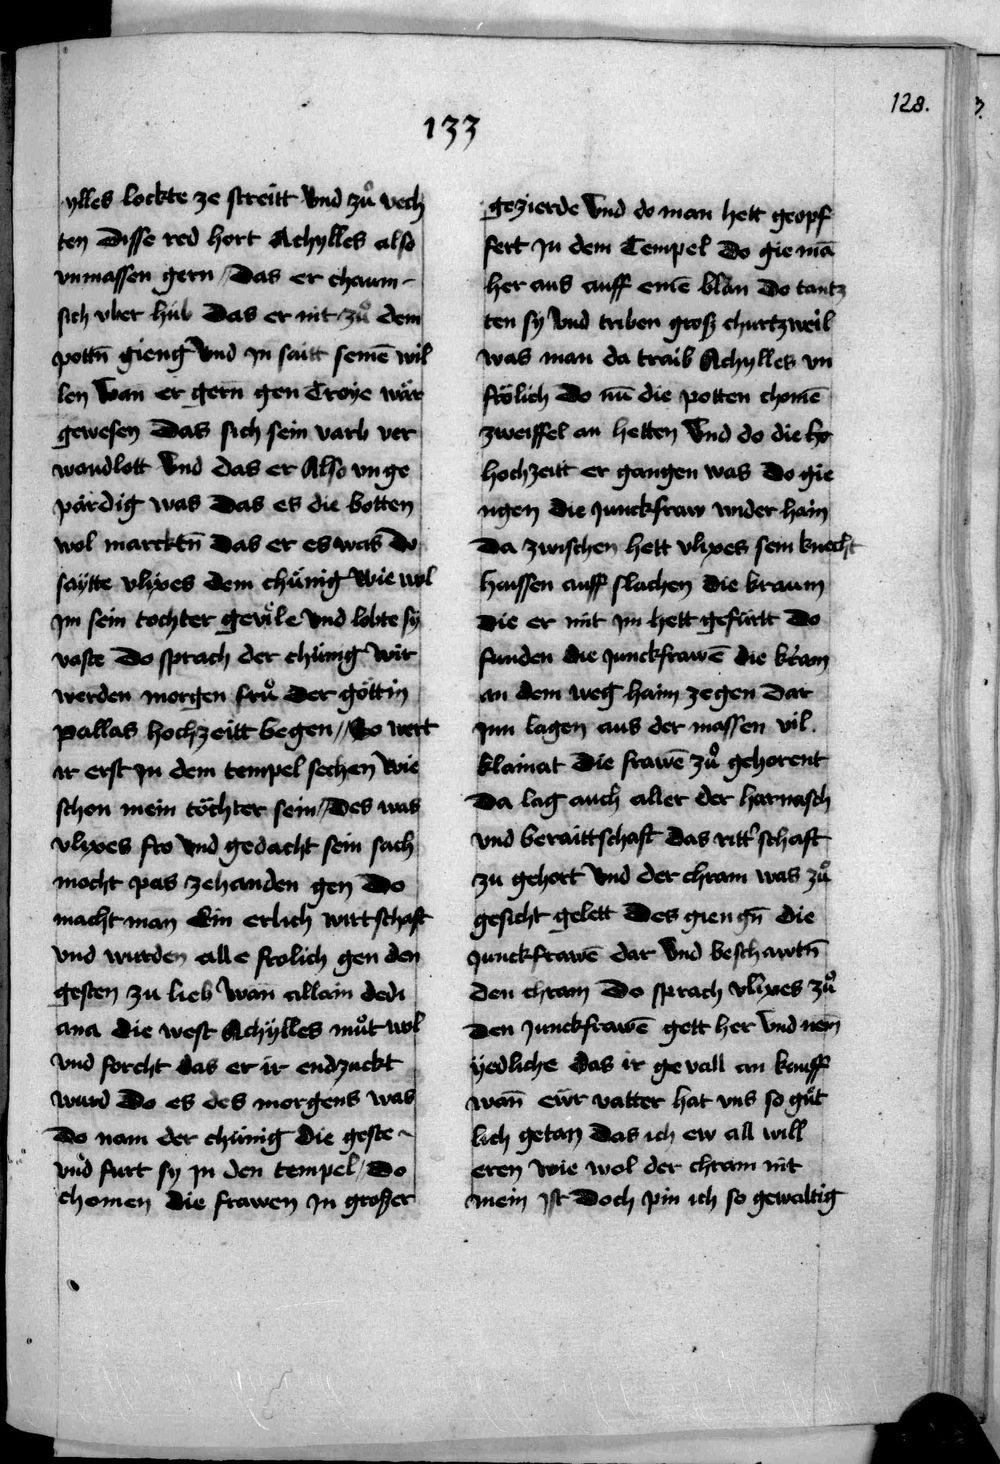 128.
133
ylles lockte ze streitt Vnd zů vech
ten Disse red hort Achylles also
vnmassen gern / Das er chaum
sich vber hůb Das er nit zů dem
pottñ gieng Vnd Jn saitt seinē wil
len Wan er gern gen Troye wär
gewesen Das sich sein varb ver
wandlott Vnd das er Also vn ge
pärdig was Das es die botten
wol marcktñ Das er es was Do
saÿtte vlixes dem chünig Wie wol
Jm sein tochter geviele Vnd lobte sy
vaste Do sprach der chünig Wir
werden morgen frů Der göttin
Pallas hochzeitt begen // So wert
ir erst Jn dem tempel sechen Wie
schon mein töchter sein / Des was
vlixes fro Vnd gedacht sein sach
mocht pas zehanden gen Do
macht man Ein erlich wirtschaft
vnd wurden alle frolich gen den
gesten zu lieb Wan allain dedi
ana die west Achÿlles můt wol
vnd forcht das er ir endzuckt
wurd Do es des morgens was
Do nam der chünig die geste
vnd furt sy Jn den tempel / Do
chomen die frawen Jn grosser
gezierde Vnd do man hett geopf
fert Jn dem Tempel Do gie mā
her aus auff einē blan Do tantz
ten sy Vnd triben gross churtzweil
was man da traib Achylles vn
frölich Do nū die potten chomē
zweiffel an hetten Vnd do die ho
hochzeitt er gangen was Do gie
ngen die Junckfraw wider haim
Da zwischen hett vlixes sein knecht
haissen auff slachen die kraum
Die er mit Jm hett gefürtt Do
funden die Junckfrawē die kram
an dem weg haim ze gen Dar
Jnn lagen aus der massen vil.
klainat Die frawē zů gehorent
Da lag auch aller der harnasch
vnd beraittschaft Das ritt'schaft
zu gehort Vnd der chram was zů
gesicht gelett Des giengñ die
Junckfrawē dar Vnd beschawtñ
den chram Do sprach vlixes zů
Den Junckfrawē gett her Vnd nem
ÿedliche das ir ge vall an kauff
wañ ewr vatter hat vns so gůt
lich getan Das ich ew all will
eren Wie wol der chram nit
mein Jst Doch pin ich so gewaltig